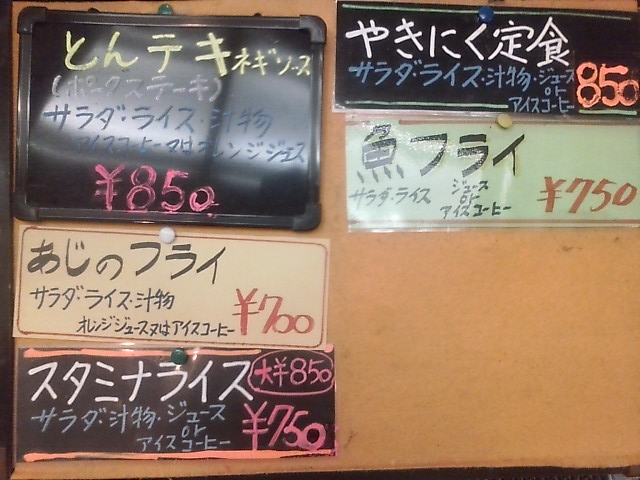 とんテキネギソース
(ポークステーキ)
サラダ・ライス・汁物
アイスコーヒー又はオレンジジュース
¥850
やきにく定食
サラダ・ライス・汁物・ジュース
or
アイスコーヒー
850
魚フライ
サラダ・ライス
ジュース
or
アイスコーヒー
¥750
あじのフライ
サラダ・ライス・汁物
オレンジジュース又はアイスコーヒー
¥700
スタミナライス
大¥850
サラダ・汁物・ジュース
or
アイスコーヒー
¥750